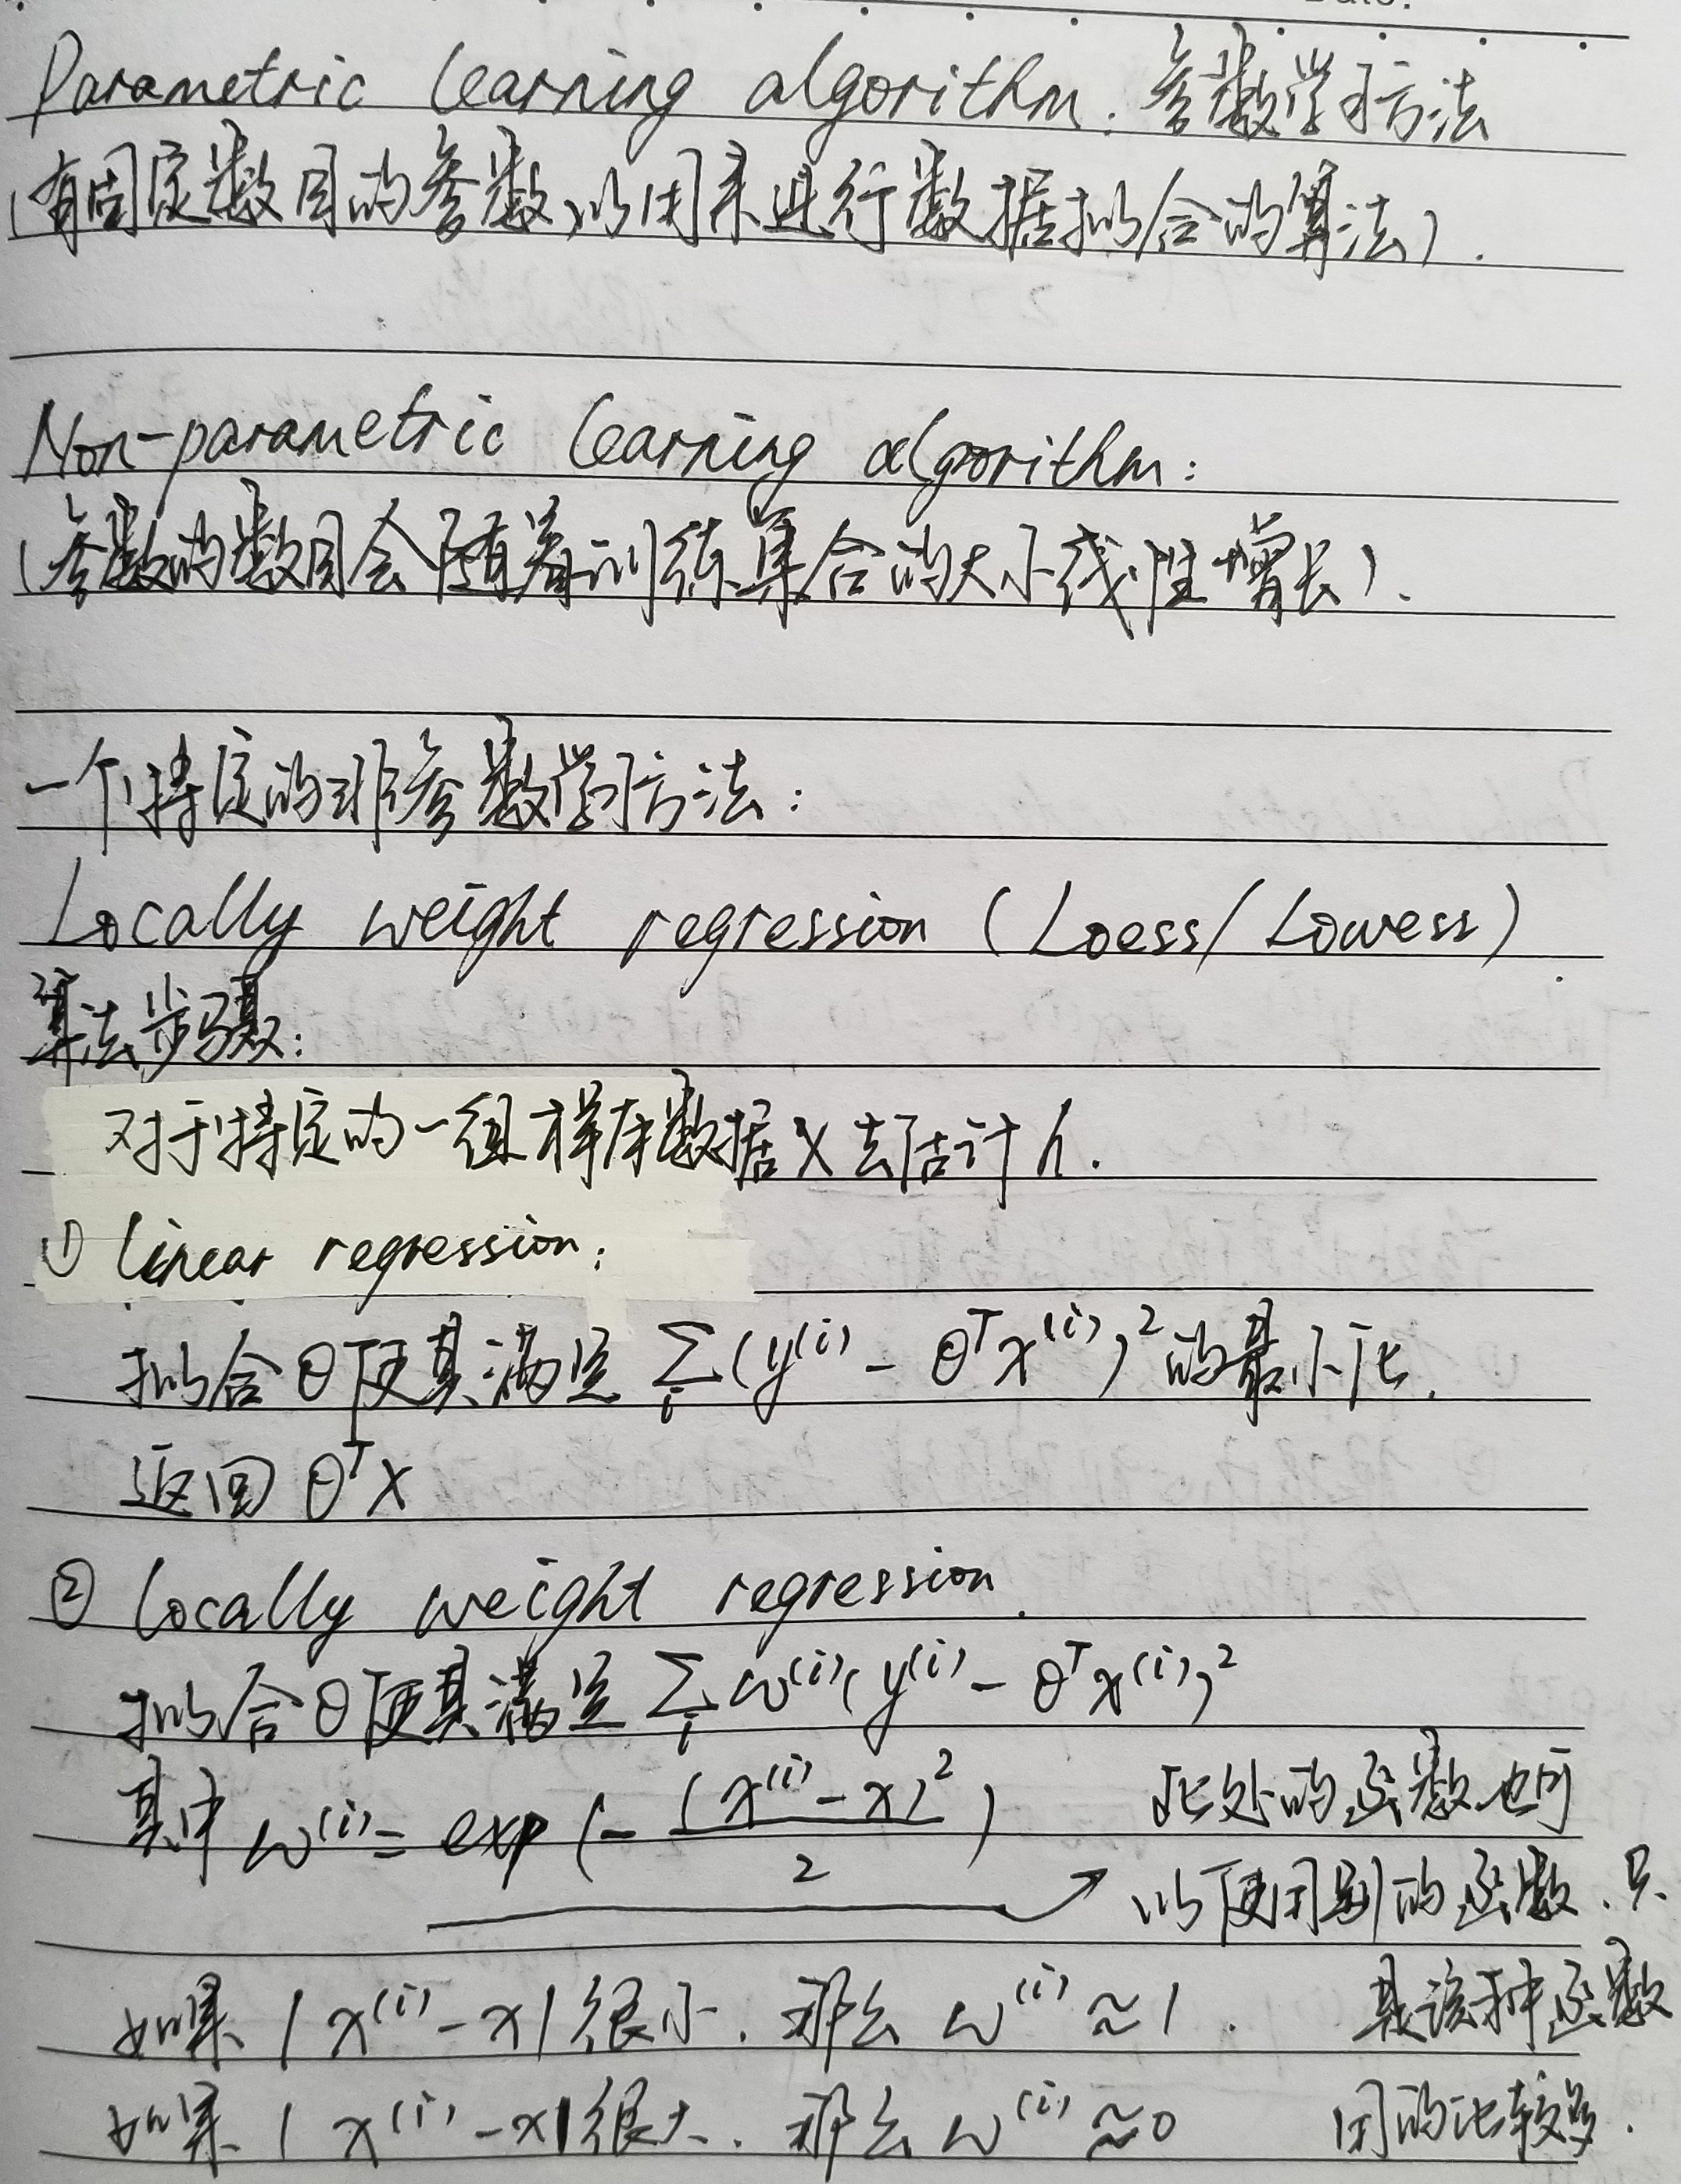 Parametric learning algorithm: 参数学习方法
(有固定数目的参数,以用来进行数据拟合的算法).
Non-parametric learning algorithm:
(参数的数目会随着训练集合的大小线性增长).
一个特定的非参数学习方法:
Locally weight regression (Loess/Lowess)
算法步骤:
对于特定的一组样本数据X去估计h.
① linear regression:
拟合θ使其满足 ∑_i (y^(i) - θ^T x^(i))^2 的最小化.
返回 θ^T X
② locally weight regression.
拟合θ使其满足 ∑_i ω^(i) (y^(i) - θ^T x^(i))^2
其中 ω^(i) = exp (- (x^(i) - x)^2 / 2)
此处的函数也可
以使用别的函数.只
如果 |x^(i) - x| 很小. 那么 ω^(i) ≈ 1.
是该种函数
如果 |x^(i) - x| 很大. 那么 ω^(i) ≈ 0
用的比较多.